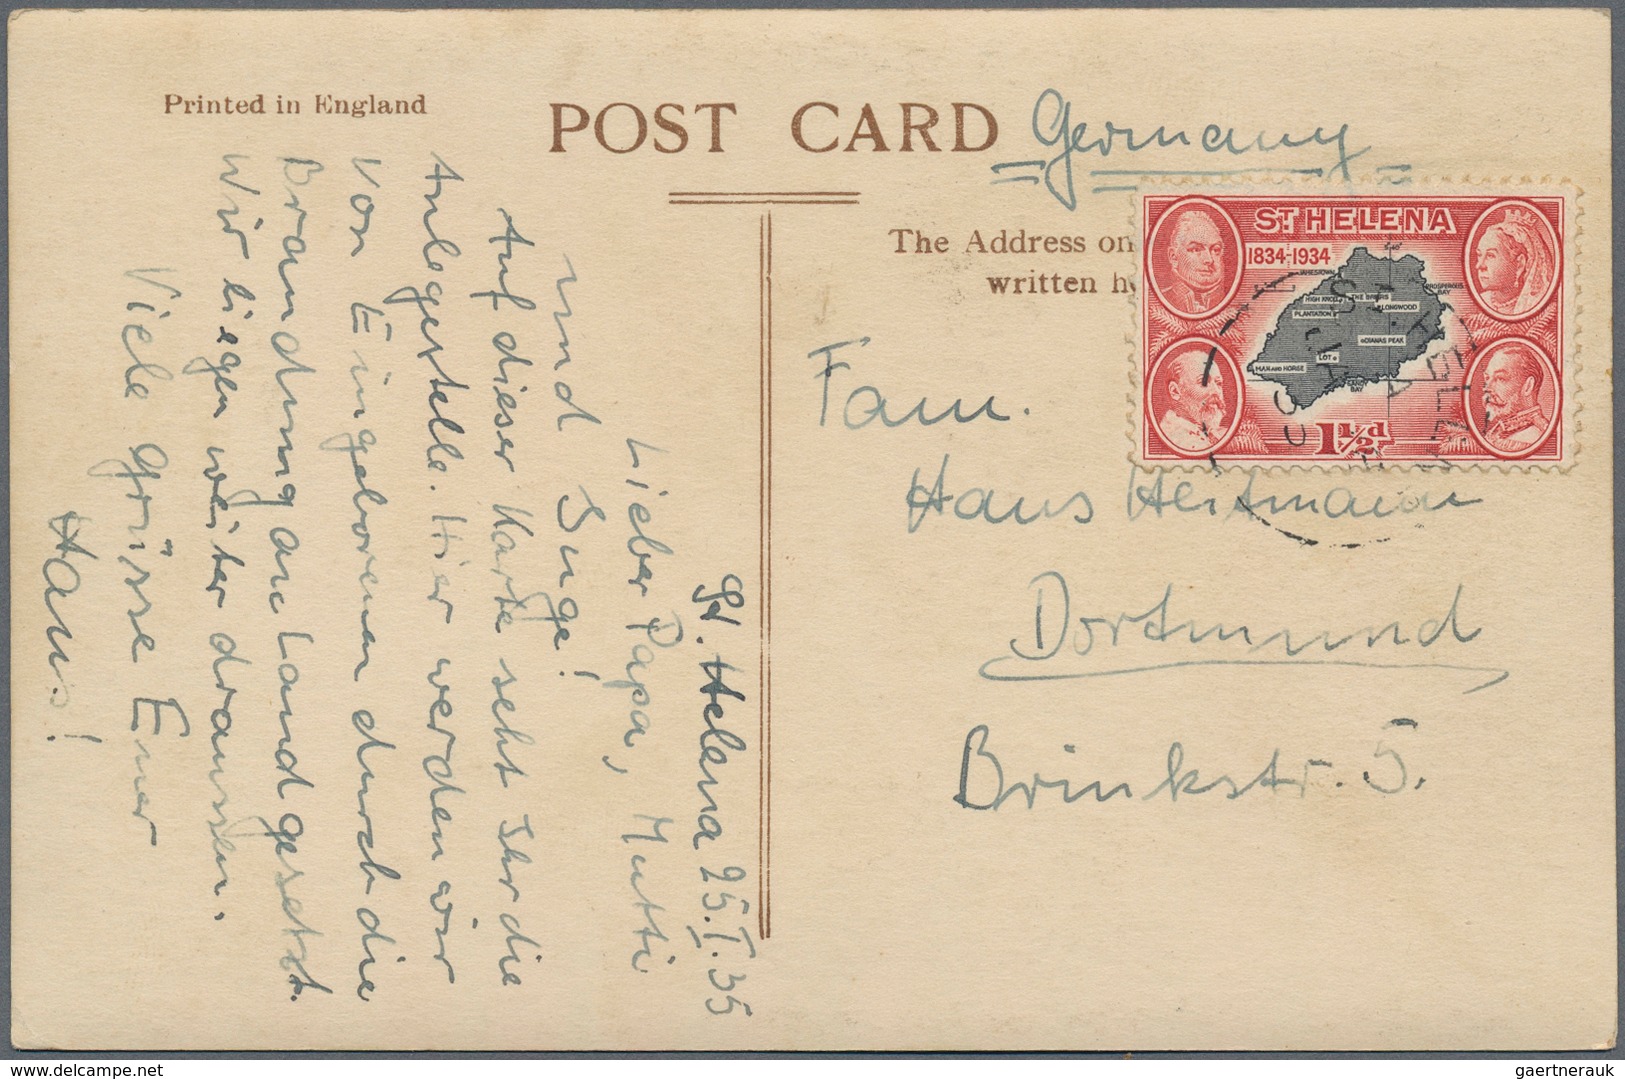 Printed in England
POST CARD
Germany
The Address on
written he
ST HELENA
1834-1934
JAMESTOWN
PROSPEROUS
BAY
HIGH KNOLL
THE BRIARS
LONGWOOD
PLANTATION
DIANAS PEAK
LOT
MAN AND HORSE
SANDY
BAY
1½d
ST. HELENA
Fam.
Hans Hertmann
Dortmund
Brinkstr. 5.
St. Helena 25.I.35
Lieber Papa, Mutti
und Inge!
Auf dieser Karte seht Ihr die
Anlegestelle. Hier werden wir
von Eingeborenen durch die
Brandung an Land gesetzt.
Wir liegen weiter draussen.
Viele Grüsse Euer
Hans!
gaertnerauk